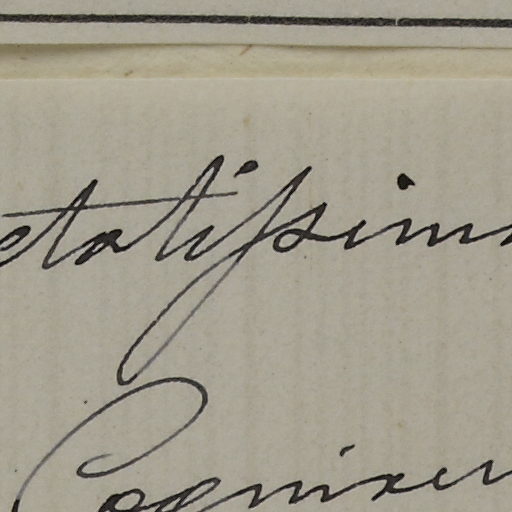 ctatissim
Cognixeu